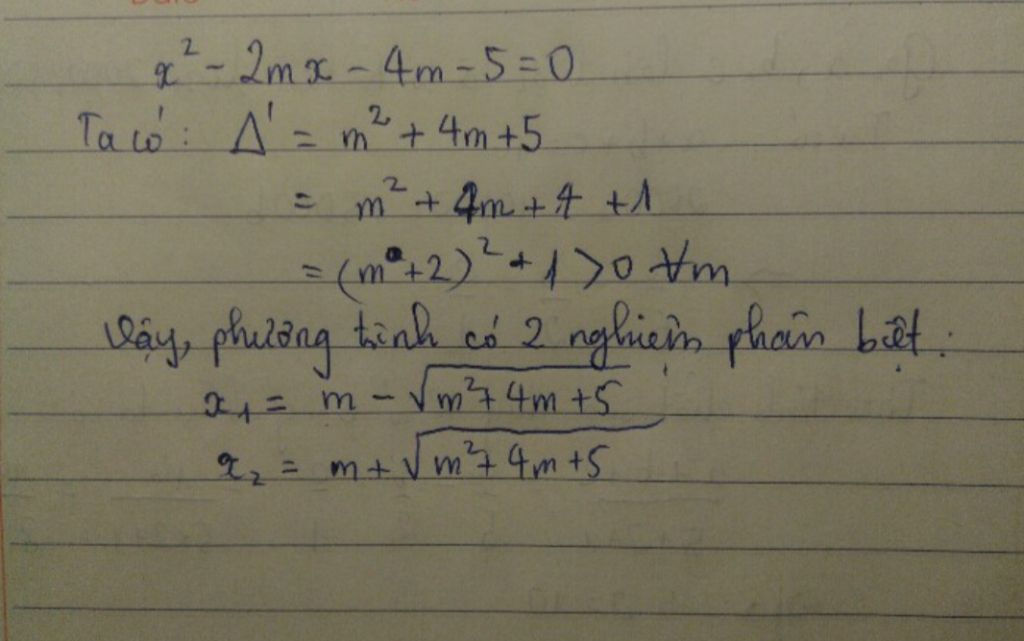 x² - 2mx - 4m - 5 = 0
Ta có: Δ' = m² + 4m + 5
= m² + 4m + 4 + 1
= (m + 2)² + 1 > 0 ∀m
Vậy, phương trình có 2 nghiệm phân biệt:
x₁ = m - √(m² + 4m + 5)
x₂ = m + √(m² + 4m + 5)